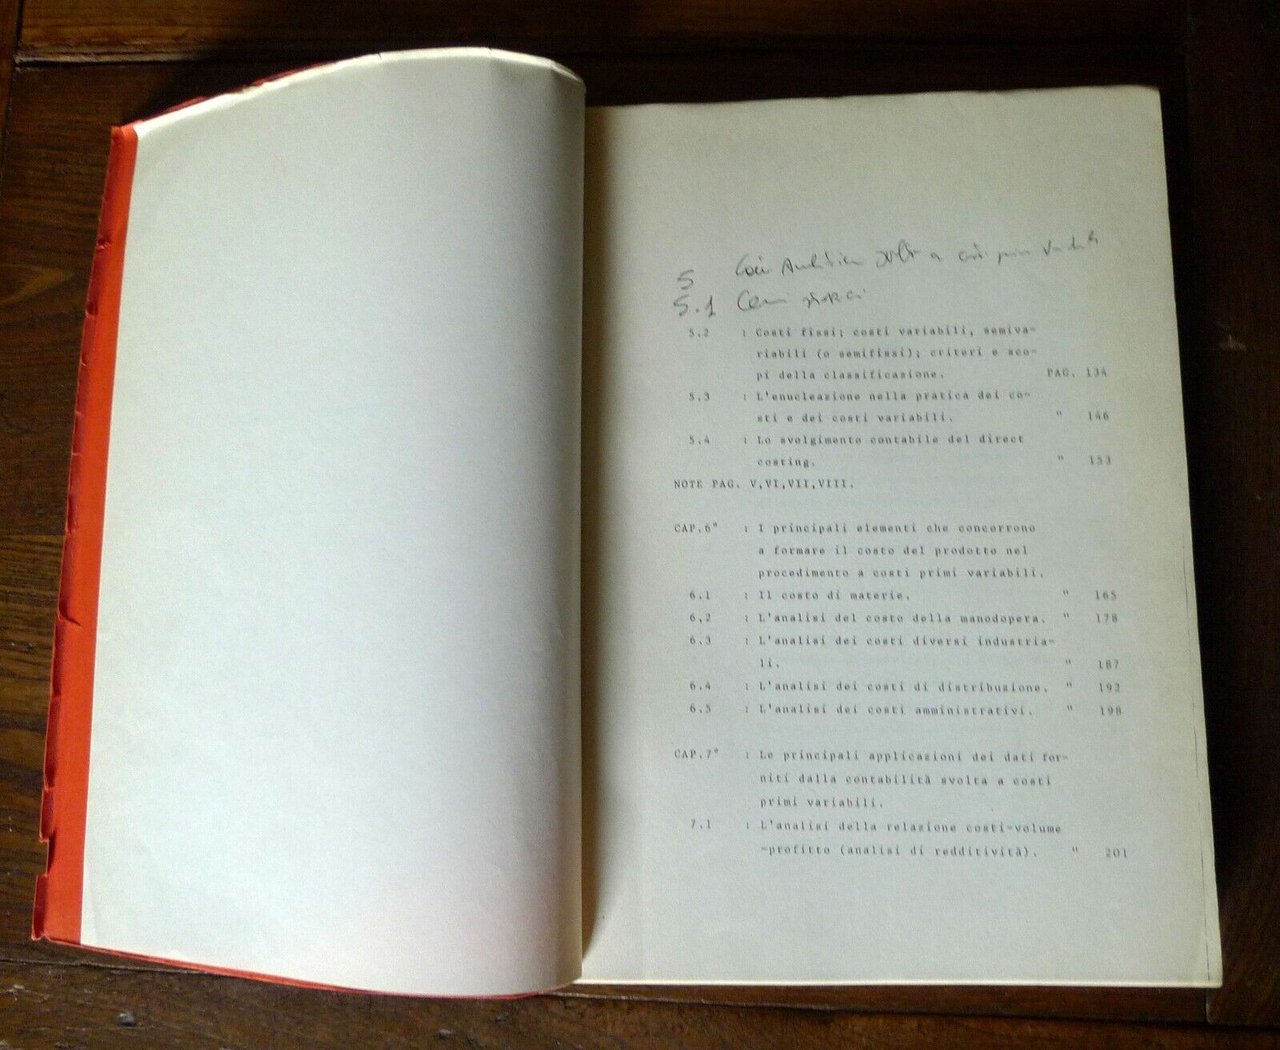 5 svolta a costi primi variabili
5.1 Cenni storici
5.2 : Costi fissi; costi variabili, semiva-
riabili (o semifissi); criteri e sco-
pi della classificazione. PAG. 134
5.3 : L'enucleazione nella pratica dei co-
sti e dei costi variabili. " 146
5.4 : Lo svolgimento contabile del direct
costing. " 153
NOTE PAG. V,VI,VII,VIII.
CAP.6° : I principali elementi che concorrono
a formare il costo del prodotto nel
procedimento a costi primi variabili.
6.1 : Il costo di materie. " 165
6,2 : L'analisi del costo della manodopera. " 178
6.3 : L'analisi dei costi diversi industria-
li. " 187
6.4 : L'analisi dei costi di distribuzione. " 192
6.5 : L'analisi dei costi amministrativi. " 198
CAP.7° : Le principali applicazioni dei dati for-
niti dalla contabilità svolta a costi
primi variabili.
7.1 : L'analisi della relazione costi-volume
-profitto (analisi di redditività). " 201